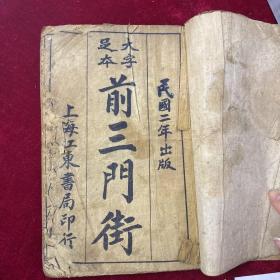 民國二年出版
大字
足本
前三門街
上海江東書局印行